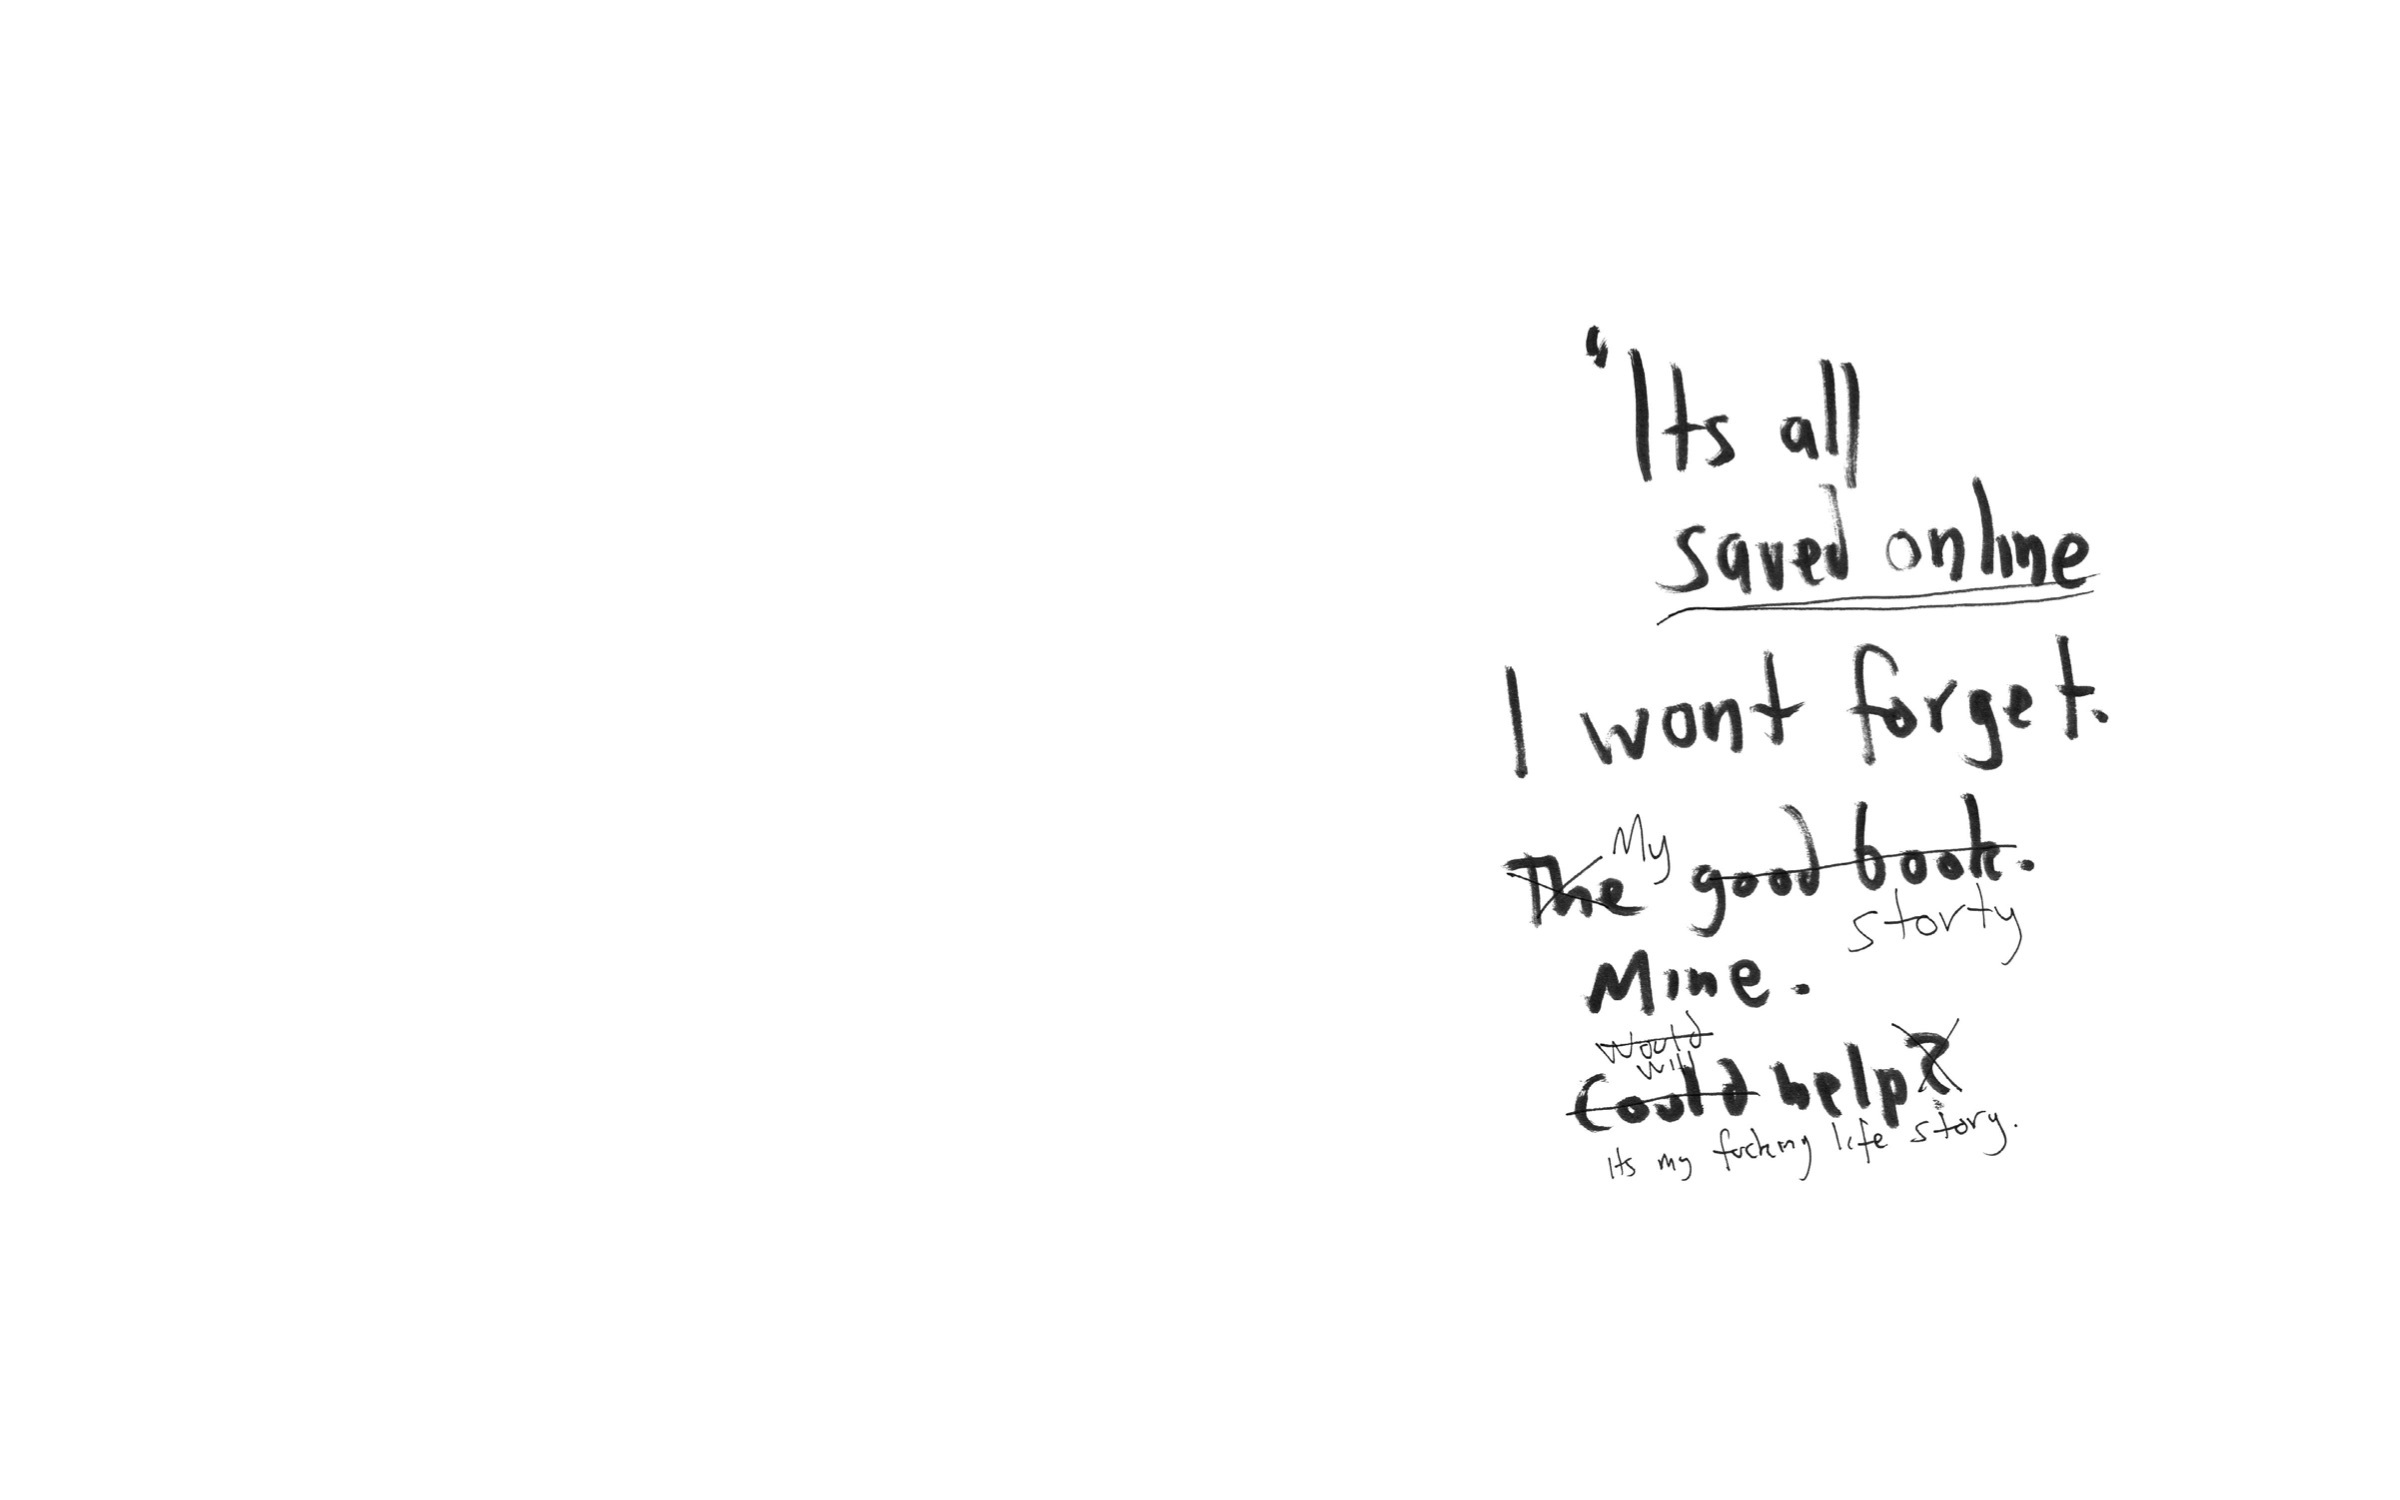 "Its all
saved online
I wont forget.
The My good book.
storty
Mine.
would
will
Could help?
Its my fucking life story.